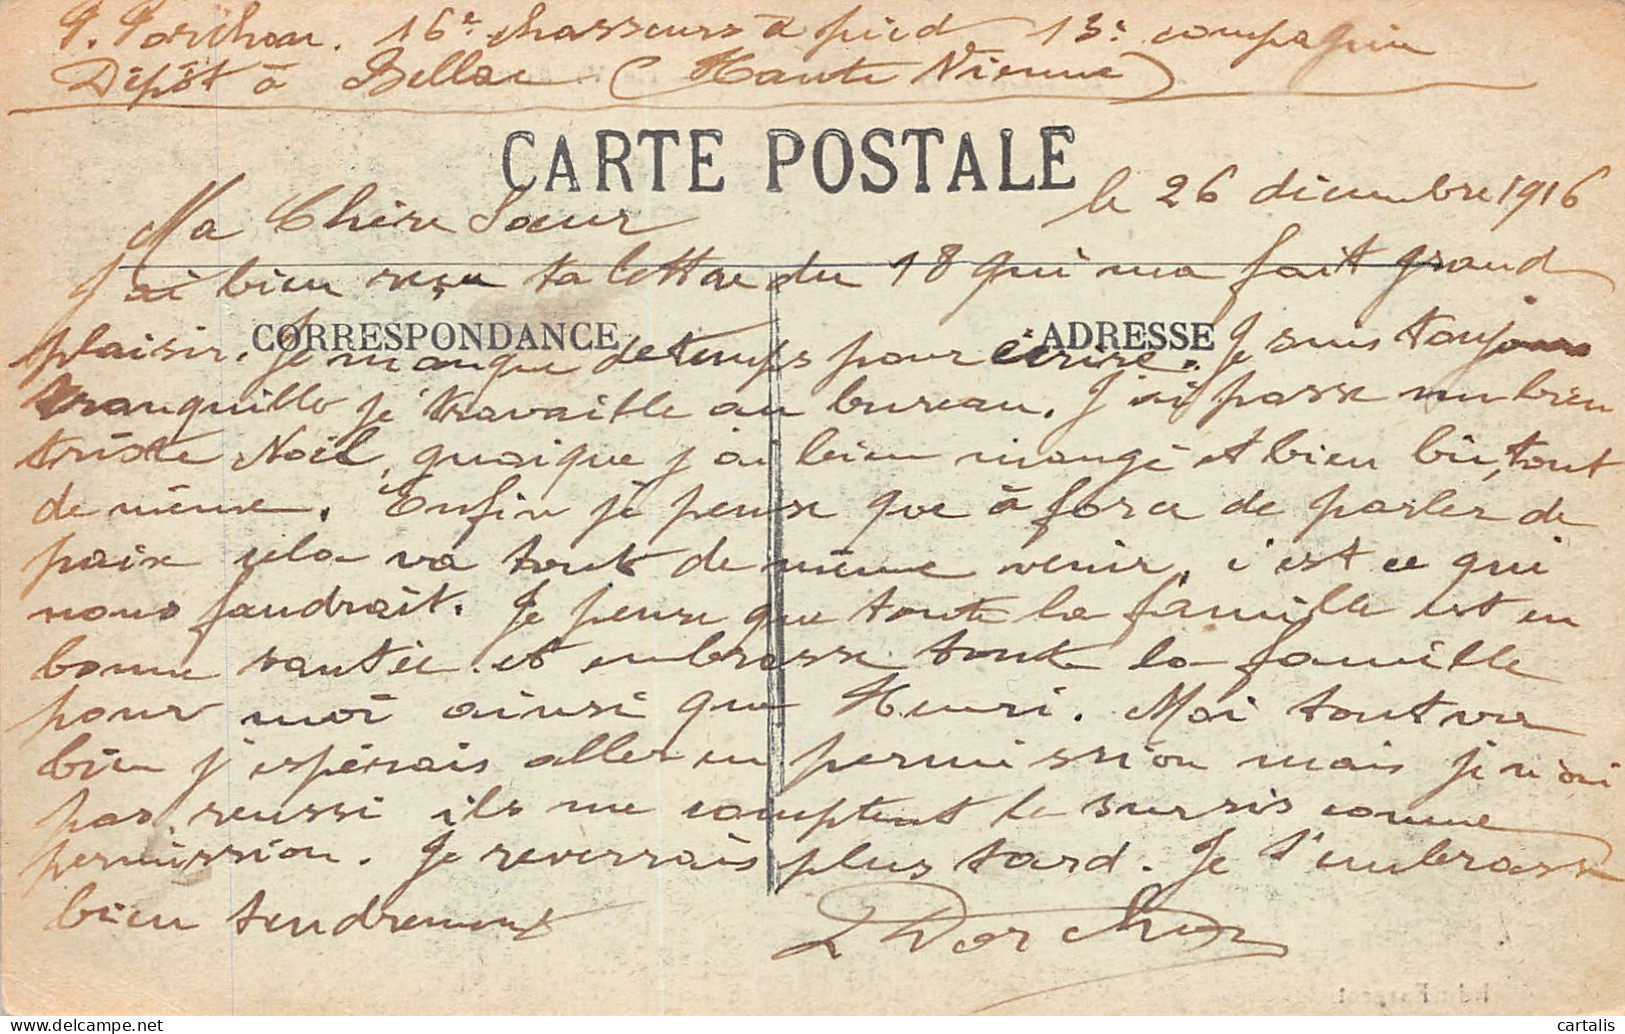 P. Porchon. 16e chasseurs à pied 13e compagnie
Dépôt à Bellac (Haute Vienne)
CARTE POSTALE
le 26 décembre 1916
Ma Chère Sœur
J'ai bien reçu ta lettre du 18 qui ma fait grand
CORRESPONDANCE
ADRESSE
plaisir. Je manque de temps pour écrire. Je suis toujours
tranquille je travaille au bureau. J'ai passé un bien
triste Noël, quoique j'ai bien mangé et bien bu, tout
de même. Enfin je pense que à force de parler de
paix cela va tout de même venir, c'est ce qui
nous faudrait. Je pense que toute la famille est en
bonne santée et embrasse toute la famille
pour moi ainsi que Henri. Moi tout va
bien j'espérais aller en permission mais je n'ai
pas reussi ils me comptent le sursis comme
permission. Je reverrais plus tard. Je t'embrasse
bien tendrement
Porchon
cartalis